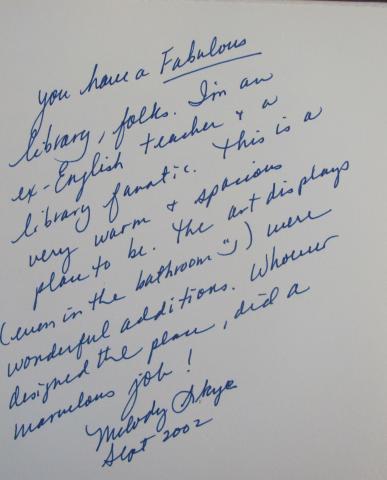 you have a Fabulous
library, folks. I'm an
ex-English teacher & a
library fanatic. This is a
very warm & spacious
place to be. The art displays
(even in the bathroom ") were
wonderful additions. Whoever
designed the place, did a
marvelous job!
Melody Skye
Sept 2002